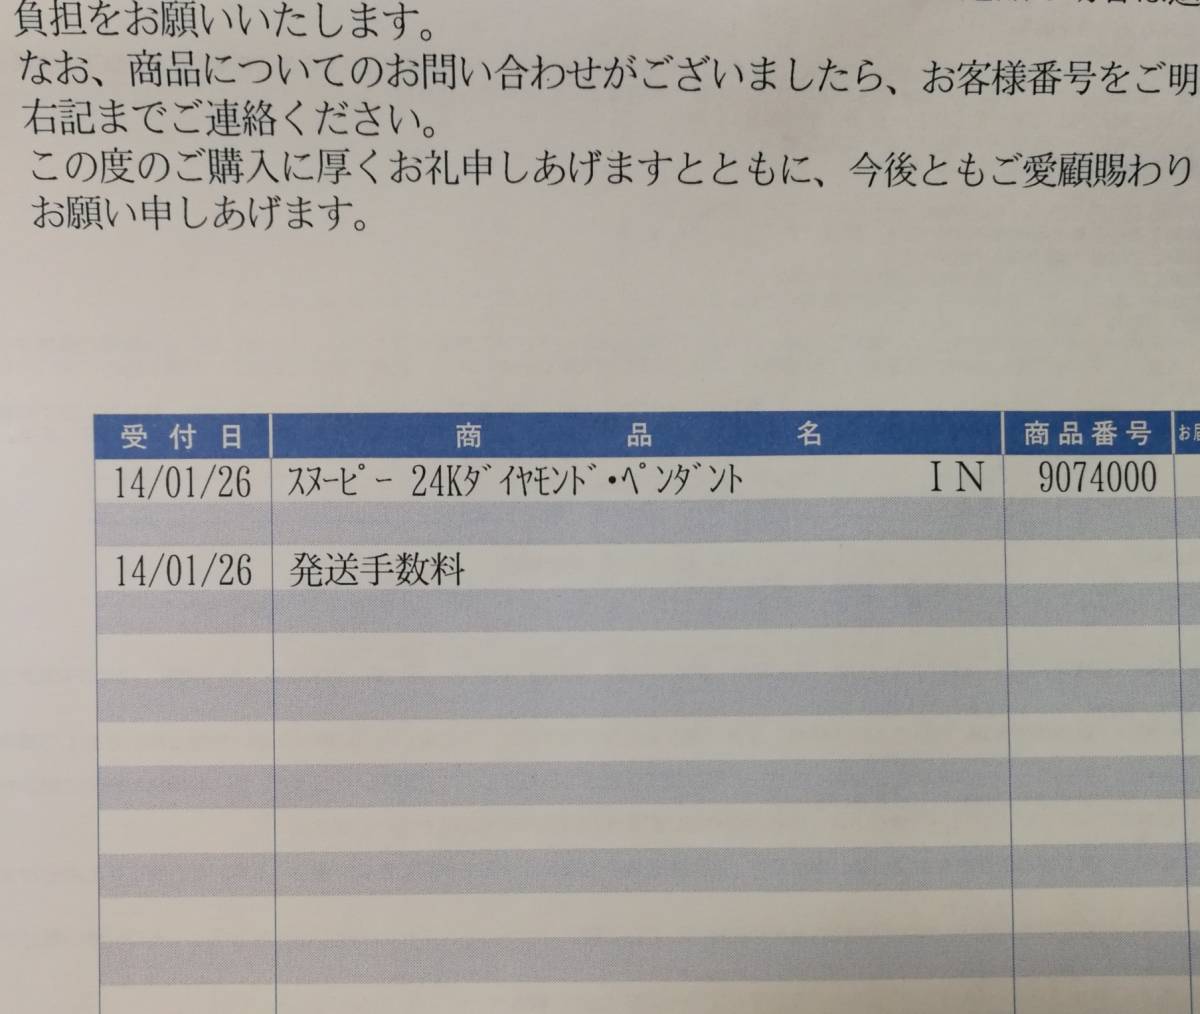 負担をお願いいたします。
なお、商品についてのお問い合わせがございましたら、お客様番号をご明
右記までご連絡ください。
この度のご購入に厚くお礼申しあげますとともに、今後ともご愛顧賜わり
お願い申しあげます。
受付日 商品名 商品番号 お届
14/01/26 ｽﾇｰﾋﾟｰ 24Kﾀﾞｲﾔﾓﾝﾄﾞ･ﾍﾟﾝﾀﾞﾝﾄ ＩＮ 9074000
14/01/26 発送手数料